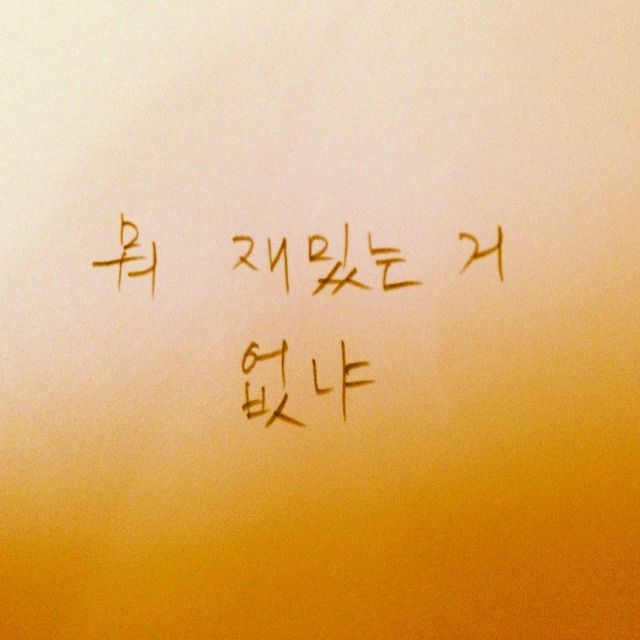 뭐 재밌는 거
없나